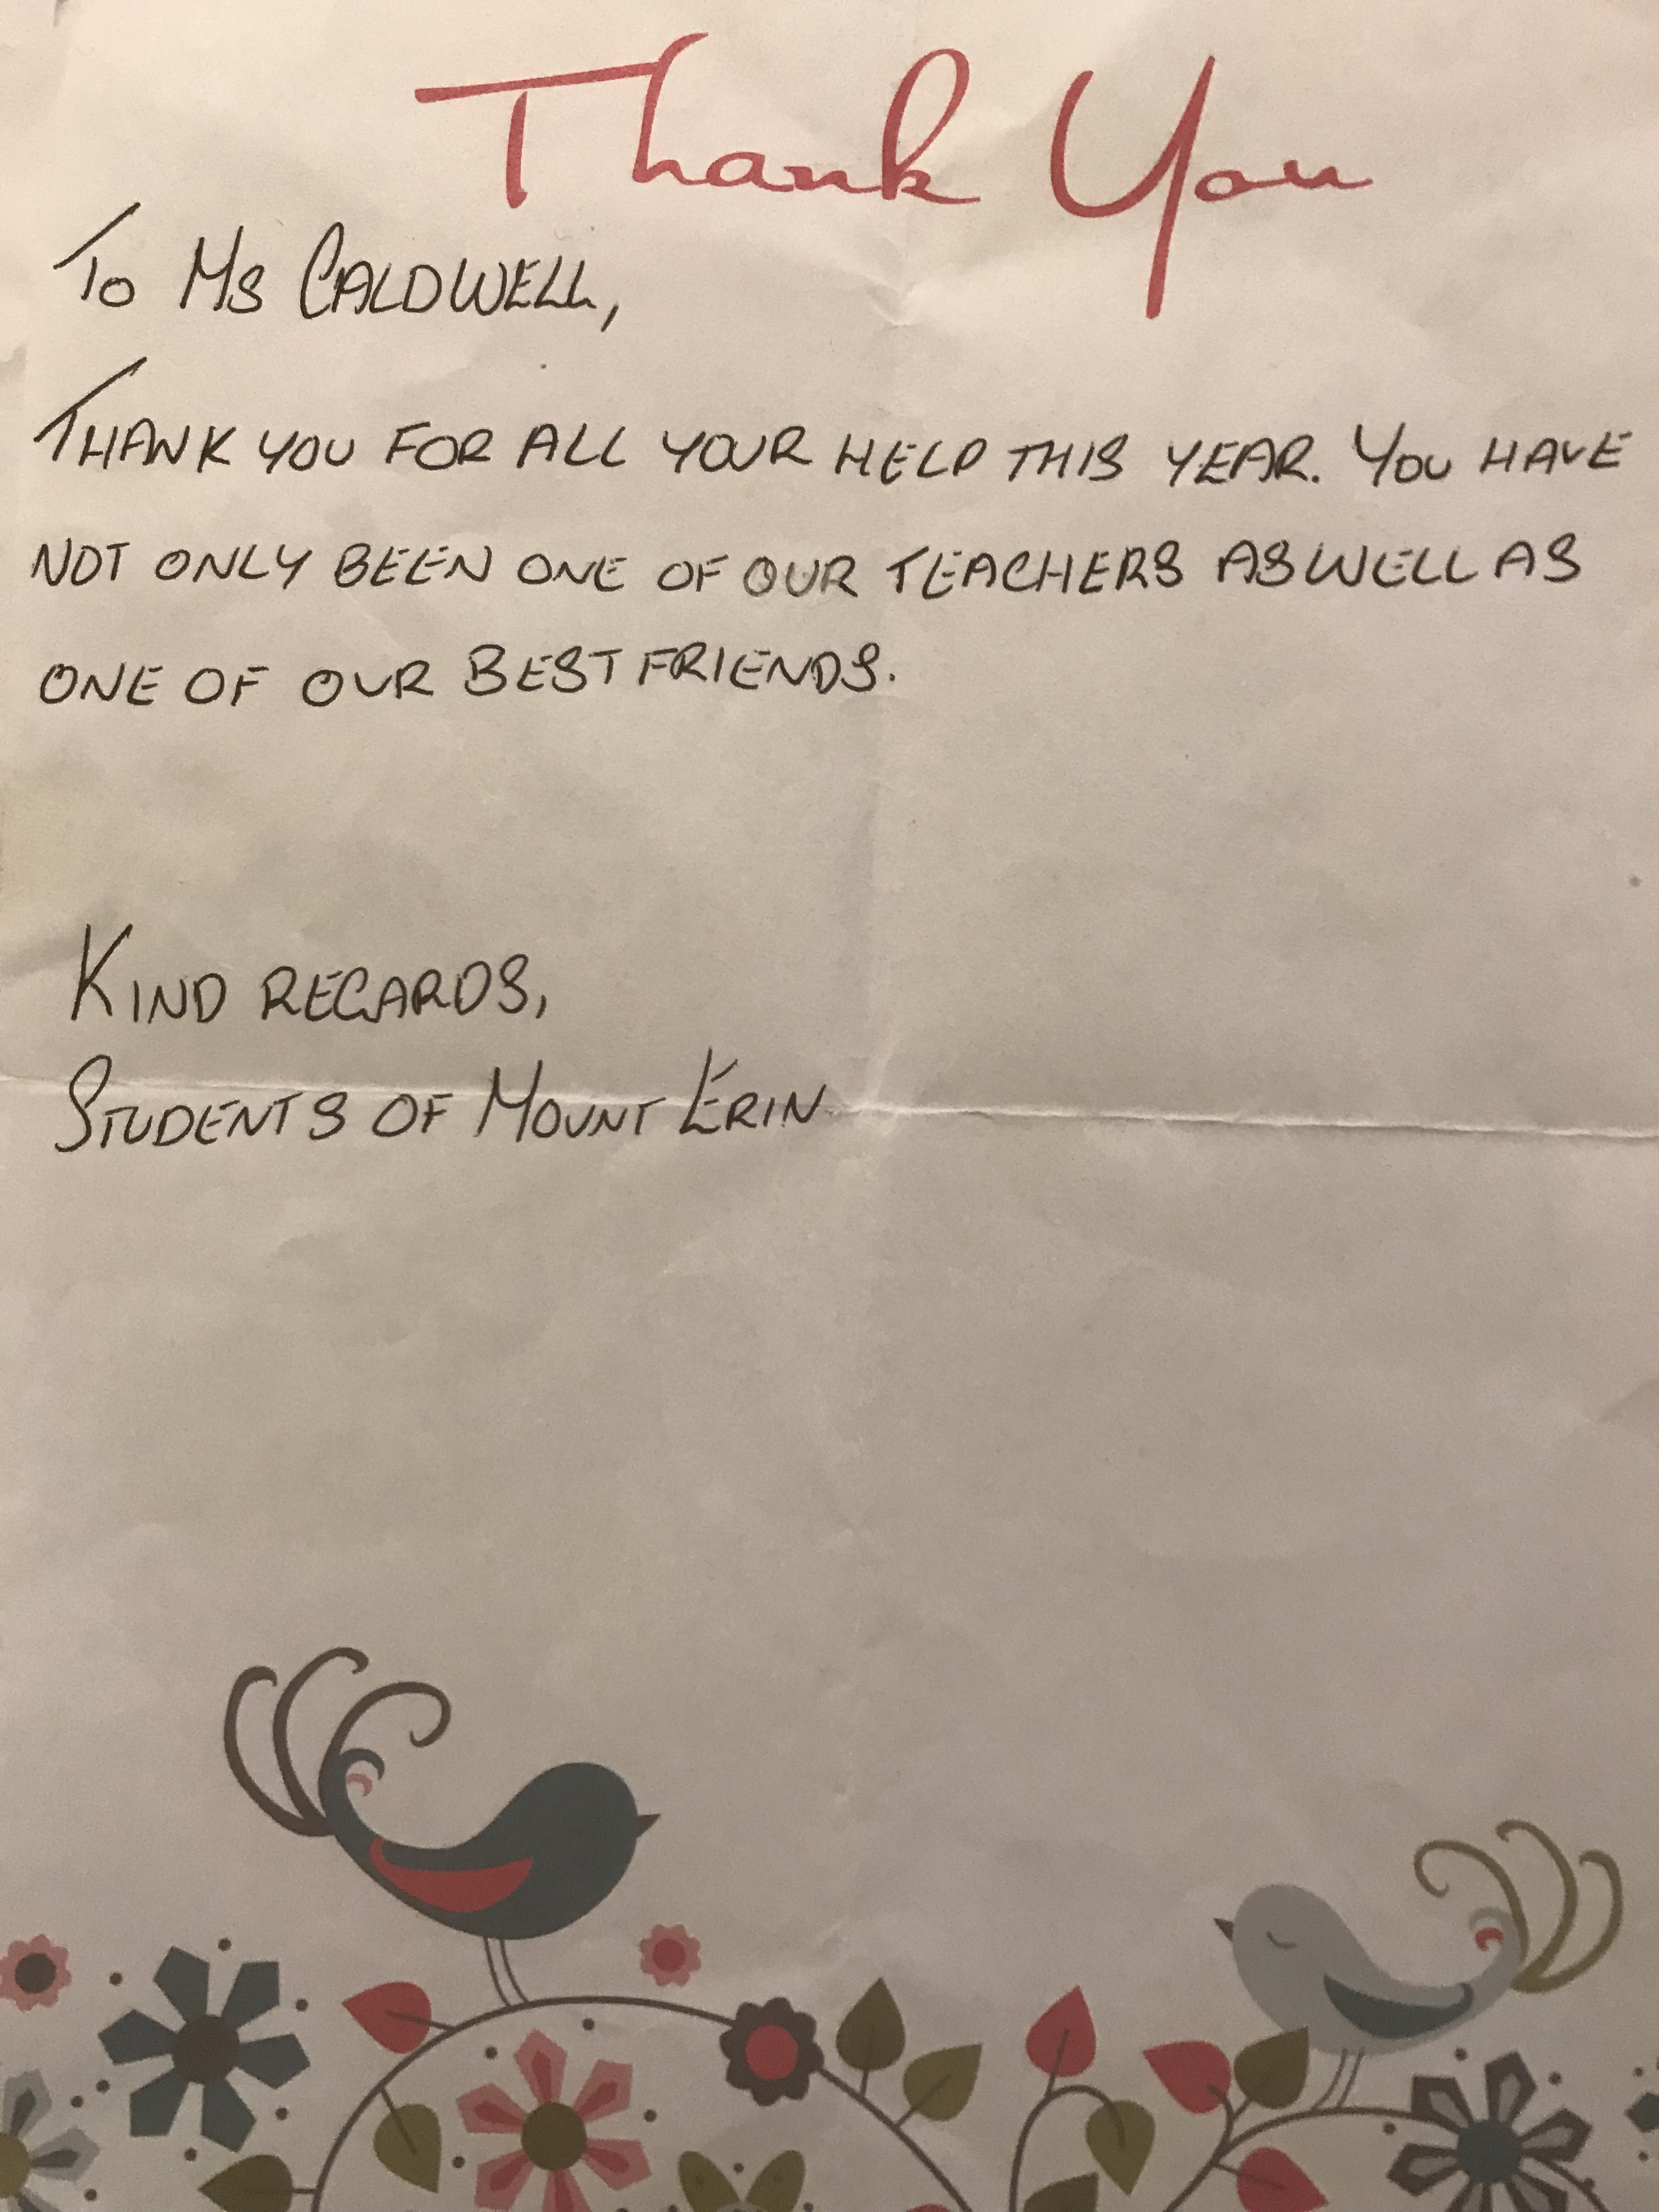 Thank You
To Ms CALDWELL,
THANK YOU FOR ALL YOUR HELP THIS YEAR. YOU HAVE
NOT ONLY BEEN ONE OF OUR TEACHERS ASWELL AS
ONE OF OUR BEST FRIENDS.
KIND REGARDS,
STUDENTS OF MOUNT ERIN